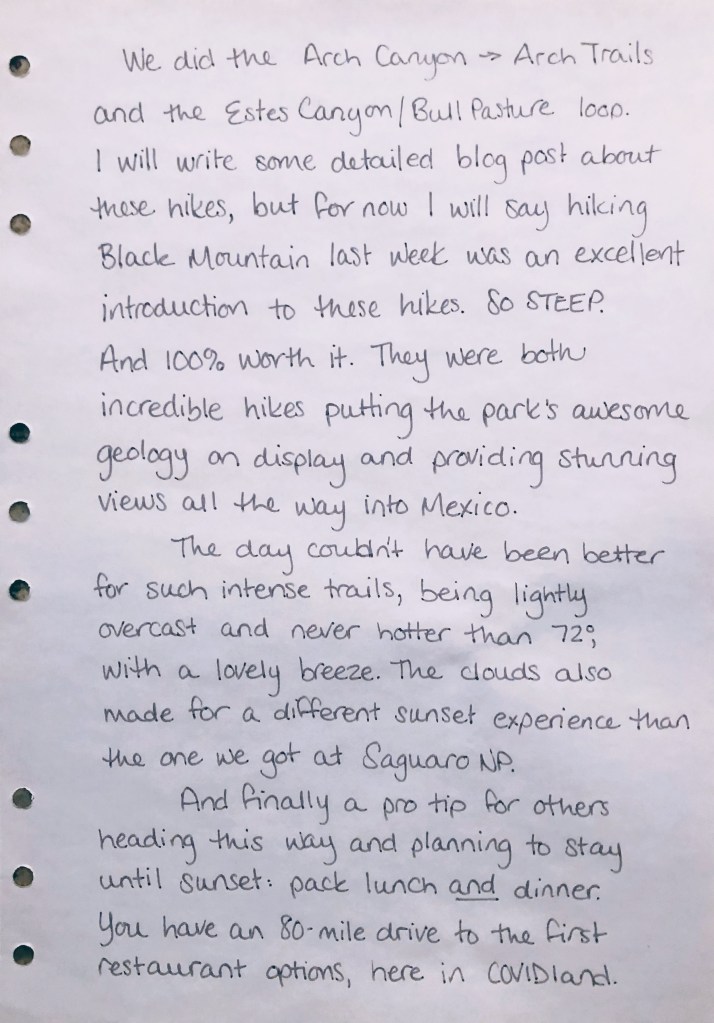 We did the Arch Canyon → Arch Trails
and the Estes Canyon/Bull Pasture loop.
I will write some detailed blog post about
these hikes, but for now I will say hiking
Black Mountain last week was an excellent
introduction to these hikes. So STEEP.
And 100% worth it. They were both
incredible hikes putting the park's awesome
geology on display and providing stunning
views all the way into Mexico.
The day couldn't have been better
for such intense trails, being lightly
overcast and never hotter than 72°,
with a lovely breeze. The clouds also
made for a different sunset experience than
the one we got at Saguaro NP.
And finally a pro tip for others
heading this way and planning to stay
until sunset: pack lunch and dinner.
You have an 80-mile drive to the first
restaurant options, here in COVIDland.